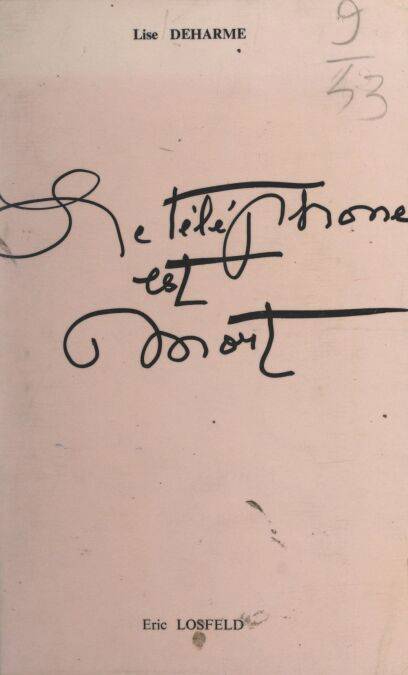 Lise DEHARME
9
53
Le Téléphone
est
Mort
Eric LOSFELD